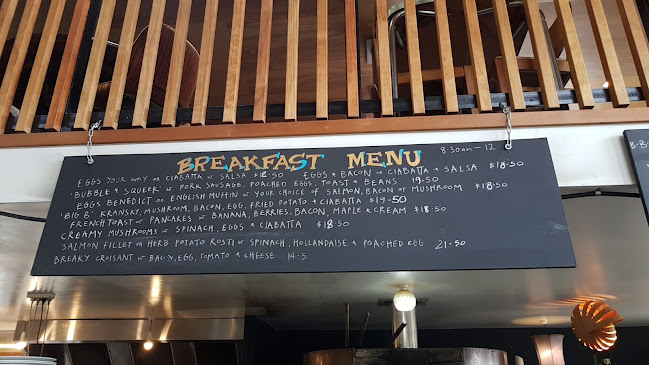 BREAKFAST MENU 8.30am - 12
EGGS YOUR WAY on CIABATTA w SALSA $12.50 EGGS & BACON w CIABATTA & SALSA $18.50
'BUBBLE & SQUEEK' w PORK SAUSAGE, POACHED EGGS, TOAST & BEANS 19.50
EGGS BENEDICT on ENGLISH MUFFIN w YOUR CHOICE of SALMON, BACON or MUSHROOM $18.50
'BIG B' KRANSKY, MUSHROOM, BACON, EGG, FRIED POTATO & CIABATTA $19-50
FRENCH TOAST or PANCAKES w BANANA, BERRIES, BACON, MAPLE & CREAM $18.50
CREAMY MUSHROOMS w SPINACH, EGGS & CIABATTA $18.50
SALMON FILLET on HERB POTATO ROSTI w SPINACH, HOLLANDAISE & POACHED EGG 21-50
BREAKY CROISANT w BACON, EGG, TOMATO & CHEESE 14.5